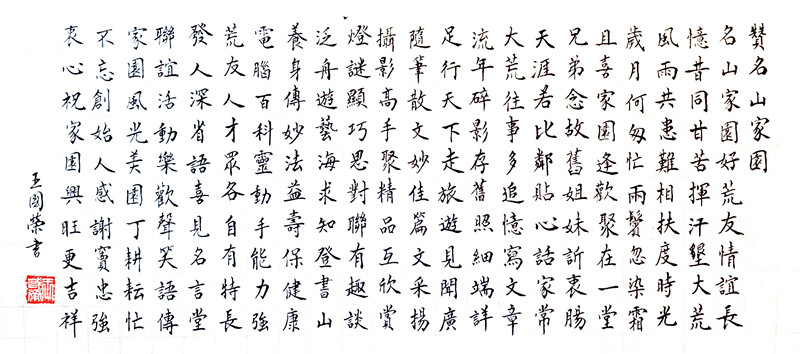 贊名山家園
名山家園好荒友情誼長
憶昔同甘苦揮汗墾大荒
風雨共患難相扶度時光
歲月何匆忙兩鬢忽染霜
且喜家园逢歡聚在一堂
兄弟念故舊姐妹訢衷腸
天涯若比鄰貼心話家常
大荒往事多追憶寫文章
流年碎影存舊照細端詳
足行天下走旅遊見聞廣
隨筆散文妙佳篇文采揚
攝影高手聚精品互欣賞
燈謎顯巧思對聯有趣談
泛舟遊藝海求知登書山
養身傳妙法益壽保健康
電腦百科靈動手能力強
荒友人才眾各自有特長
發人深省語喜見名言堂
聯誼活動樂歡聲笑語傳
家園風光美園丁耕耘忙
不忘創始人感謝竇忠強
衷心祝家園興旺更吉祥
王國榮書